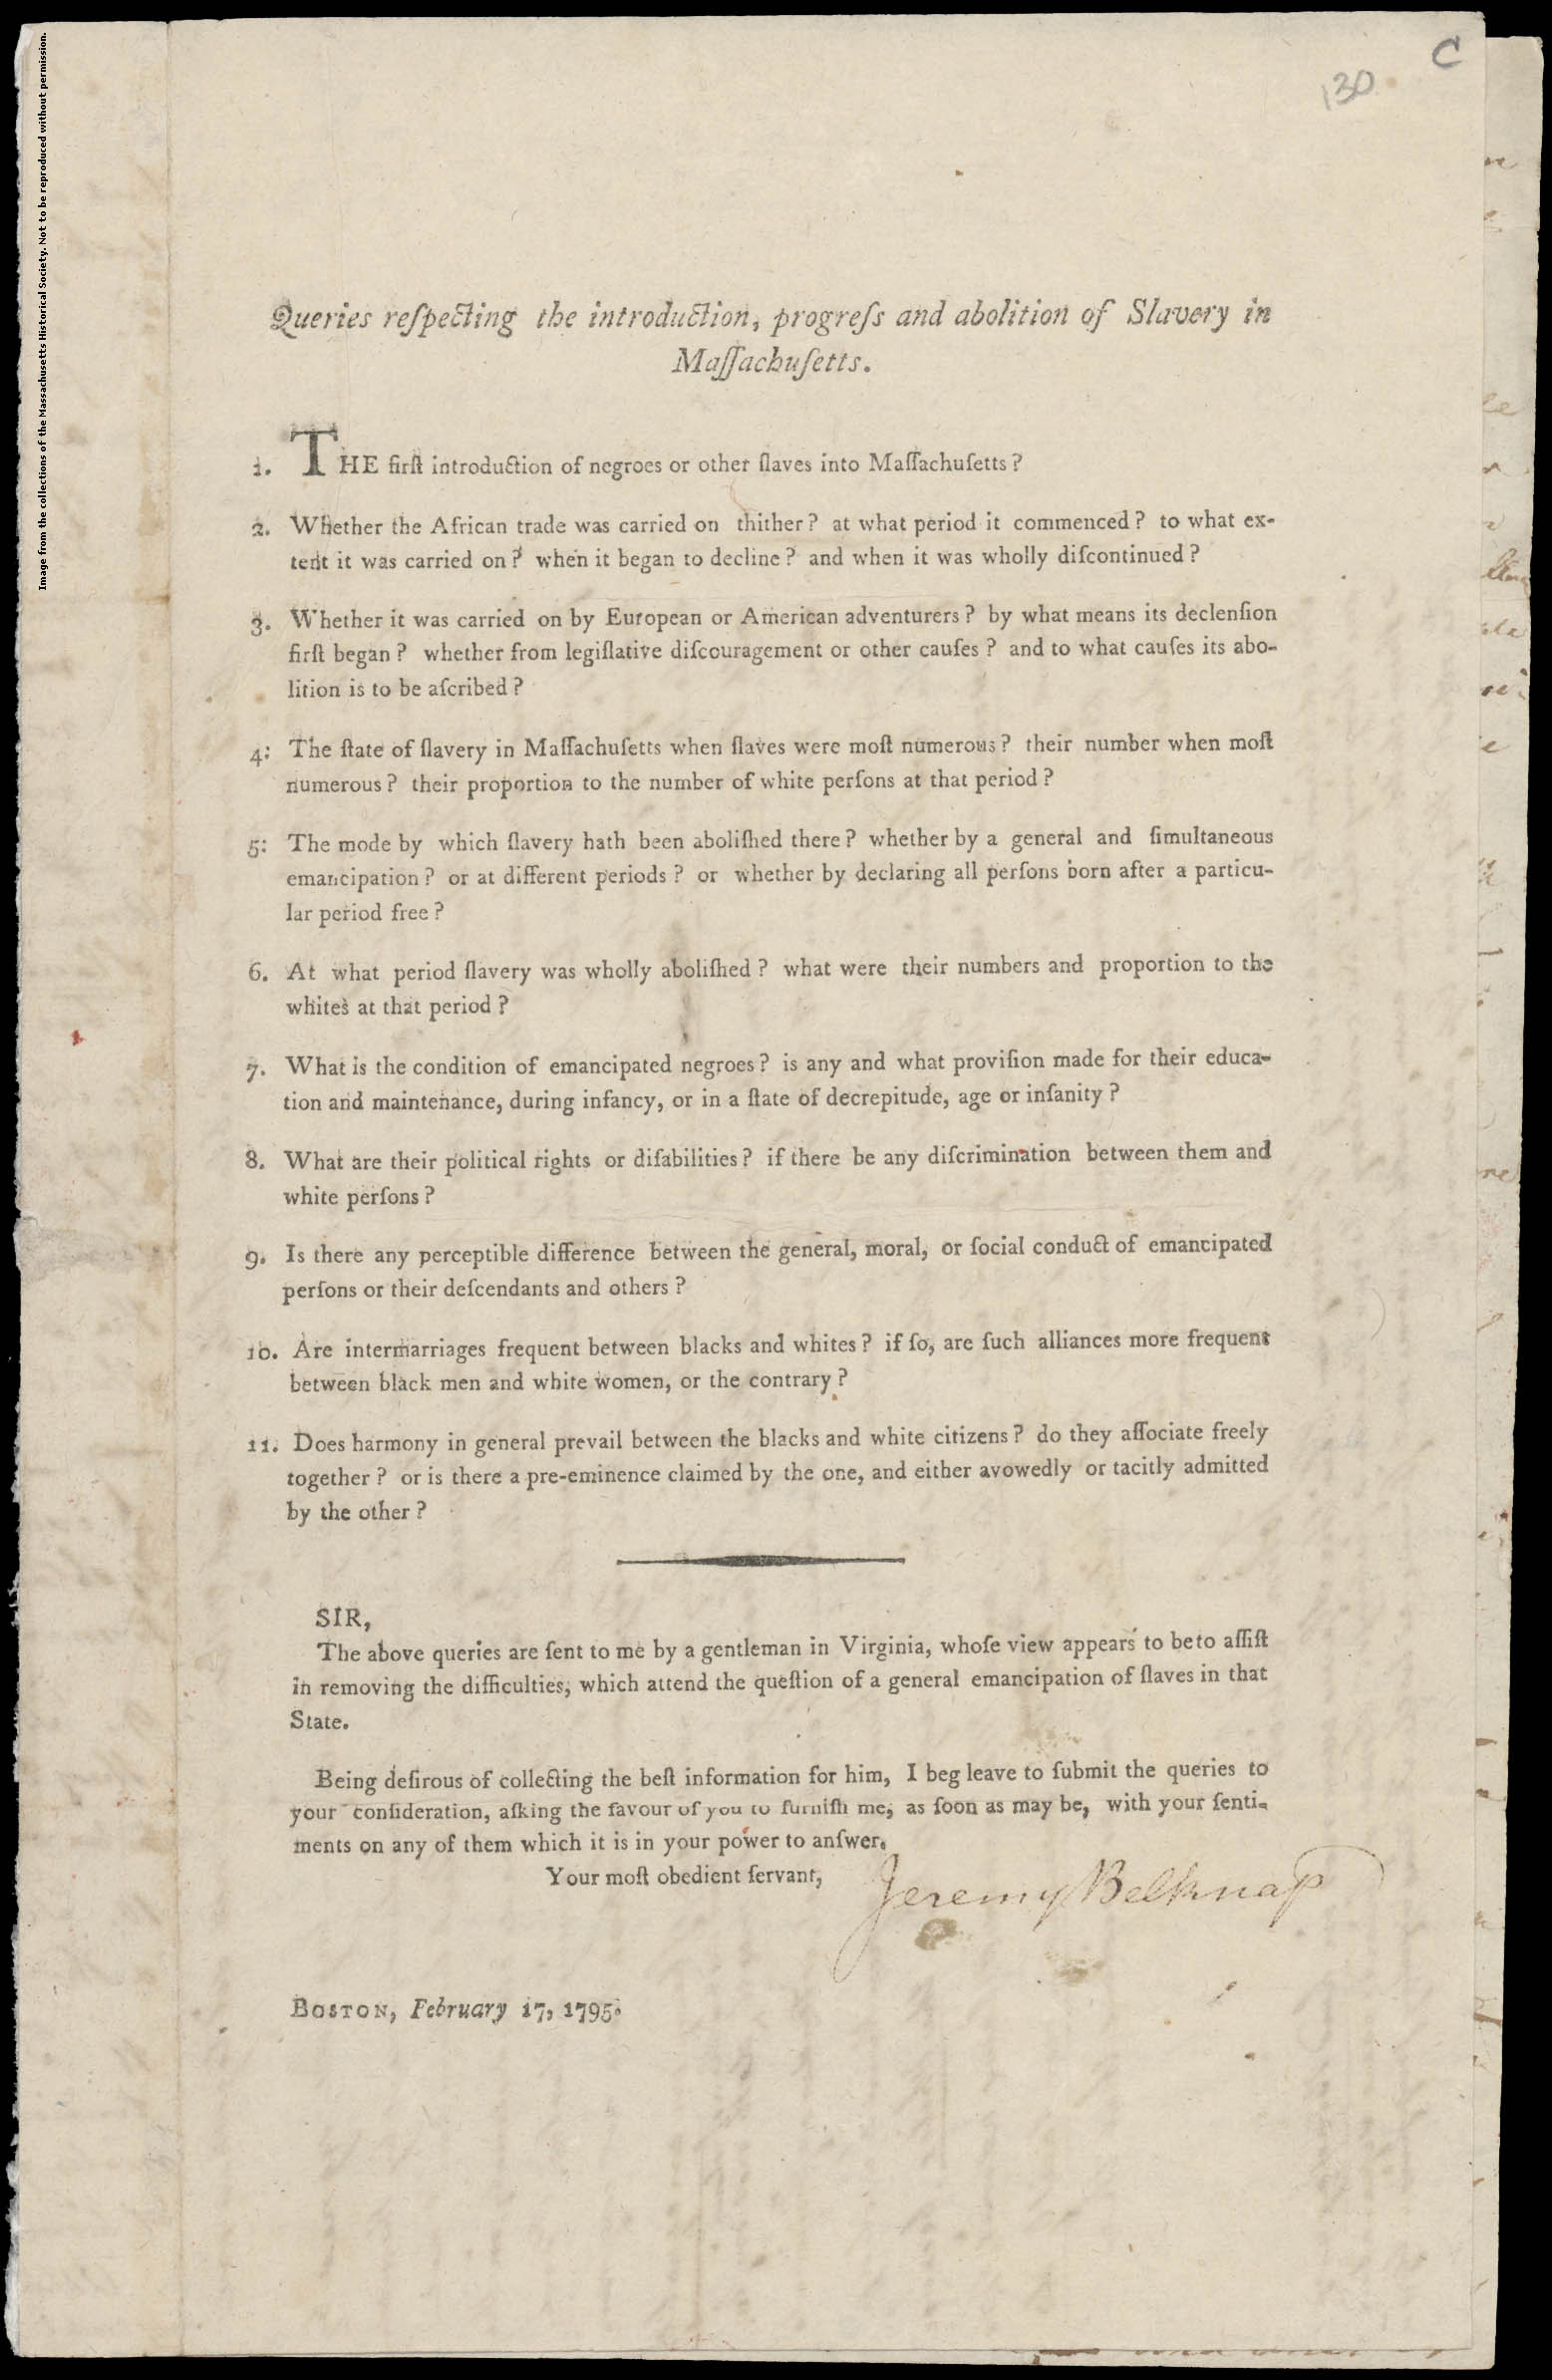 C
130
Image from the collections of the Massachusetts Historical Society. Not to be reproduced without permission.
Queries reſpecting the introduction, progreſs and abolition of Slavery in
Maſſachuſetts.
1. THE firſt introduction of negroes or other ſlaves into Maſſachuſetts?
2. Whether the African trade was carried on thither? at what period it commenced? to what ex-
tent it was carried on? when it began to decline? and when it was wholly diſcontinued?
3. Whether it was carried on by European or American adventurers? by what means its declenſion
firſt began? whether from legiſlative diſcouragement or other cauſes? and to what cauſes its abo-
lition is to be aſcribed?
4: The ſtate of ſlavery in Maſſachuſetts when ſlaves were moſt numerous? their number when moſt
numerous? their proportion to the number of white perſons at that period?
5: The mode by which ſlavery hath been aboliſhed there? whether by a general and ſimultaneous
emancipation? or at different periods? or whether by declaring all perſons born after a particu-
lar period free?
6. At what period ſlavery was wholly aboliſhed? what were their numbers and proportion to the
whites at that period?
7. What is the condition of emancipated negroes? is any and what proviſion made for their educa-
tion and maintenance, during infancy, or in a ſtate of decrepitude, age or inſanity?
8. What are their political rights or diſabilities? if there be any diſcrimination between them and
white perſons?
9. Is there any perceptible difference between the general, moral, or ſocial conduct of emancipated
perſons or their deſcendants and others?
10. Are intermarriages frequent between blacks and whites? if ſo, are ſuch alliances more frequent
between black men and white women, or the contrary?
11. Does harmony in general prevail between the blacks and white citizens? do they aſſociate freely
together? or is there a pre-eminence claimed by the one, and either avowedly or tacitly admitted
by the other?
SIR,
The above queries are ſent to me by a gentleman in Virginia, whoſe view appears to be to aſſiſt
in removing the difficulties, which attend the queſtion of a general emancipation of ſlaves in that
State.
Being deſirous of collecting the beſt information for him, I beg leave to ſubmit the queries to
your conſideration, aſking the favour of you to furniſh me, as ſoon as may be, with your ſenti-
ments on any of them which it is in your power to anſwer.
Your moſt obedient ſervant,
Jeremy Belknap
BOSTON, February 17, 1795.